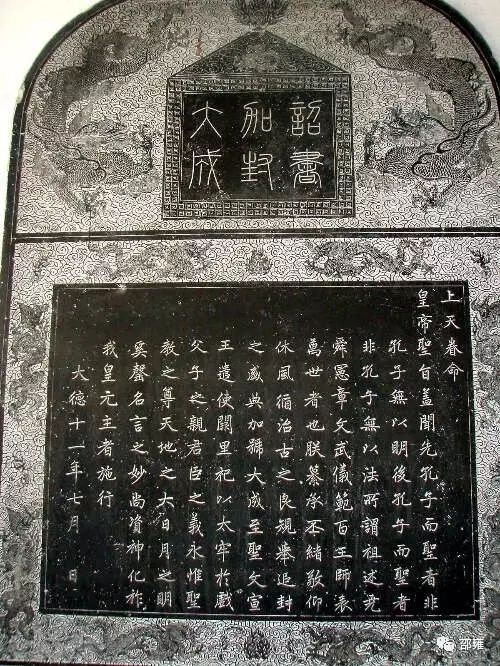 詔書
加封
大成
上天眷命
皇帝聖旨蓋聞先孔子而聖者非
孔子無以明後孔子而聖者
非孔子無以法所謂祖述堯
舜憲章文武儀範百王師表
萬世者也朕纂承丕緒敬仰
休風循治古之良規舉追封
之盛典加號大成至聖文宣
王遣使闕里祀以太牢於戲
父子之親君臣之義永惟聖
教之尊天地之大日月之明
奚罄名言之妙尚資神化祚
我皇元主者施行
大德十一年七月 日
邵雍